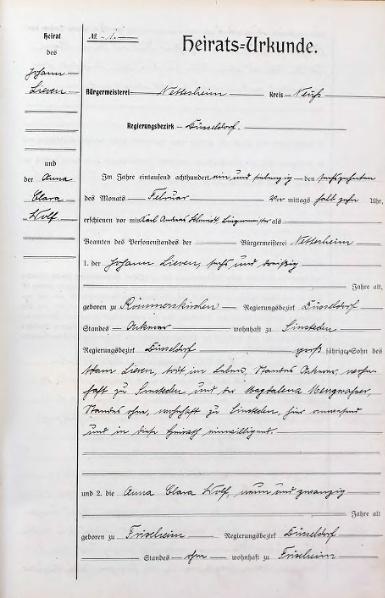 Heirat
des
Johann
Lieven
und
der Anna
Clara
Wolf
№ 1.
Heirats-Urkunde.
Bürgermeisterei Nettesheim Kreis Neuß
Regierungsbezirk Düsseldorf.
Im Jahre eintausend achthundert ein und siebenzig den sechszehnten
des Monats Februar Vor mittags halb zehn Uhr,
erschienen vor mir Karl Andreas Schmidt Bürgermeister als
Beamten des Personenstandes der Bürgermeisterei Nettesheim
1. der Johann Lieven, sechs und dreißig
Jahre alt,
geboren zu Rommerskirchen Regierungsbezirk Düsseldorf
Standes Ackerer wohnhaft zu Sinsteden
Regierungsbezirk Düsseldorf groß jähriger Sohn des
Adam Lieven, todt im Leben, Standes Ackerer, wohn-
haft zu Sinsteden und der Magdalena
Standes ohne, wohnhaft zu Sinsteden, hier anwesend
und in diese Heirath einwilligend.
und 2. die Anna Clara Wolf, neun und zwanzig
Jahre alt
geboren zu Frixheim Regierungsbezirk Düsseldorf
Standes ohne wohnhaft zu Frixheim